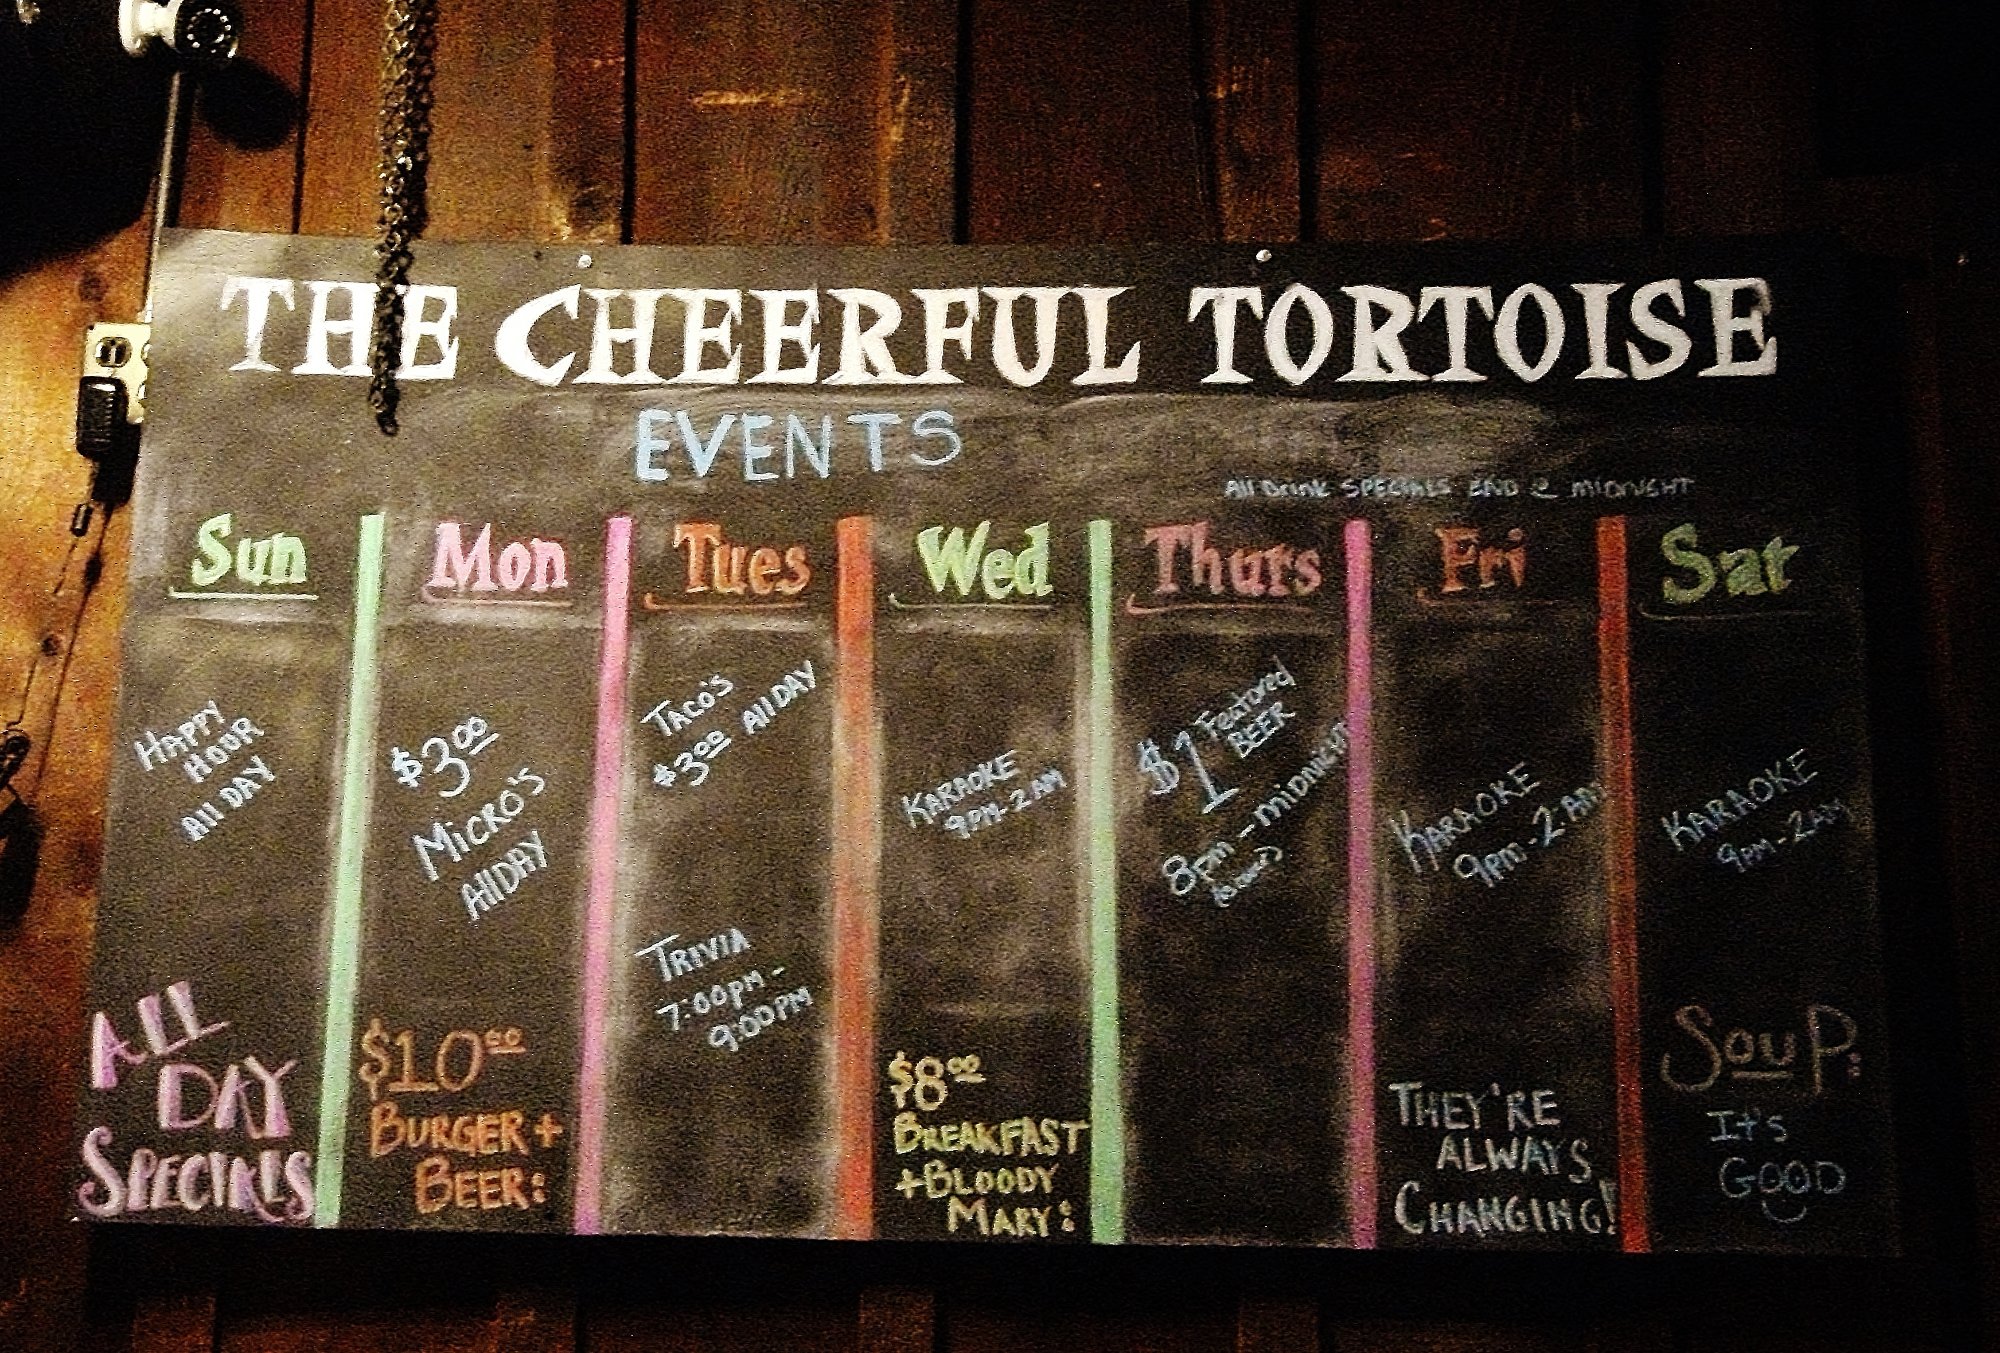 THE CHEERFUL TORTOISE
EVENTS
All Drink SPECIALS END @ MIDNIGHT
Sun
HAPPY
HOUR
All DAY
Mon
$3.00
MICRO'S
All DAY
Tues
TACO'S
$3.00 All DAY
TRIVIA
7:00pm -
9:00PM
Wed
KARAOKE
9PM-2AM
Thurs
$1 Featured
BEER
8pm - MIDNIGHT
Fri
KARAOKE
9pm-2AM
Sat
KARAOKE
9PM-2AM
ALL
DAY
SPECIALS
$10.00
BURGER +
BEER:
$8.00
BREAKFAST
+ BLOODY
MARY:
THEY'RE
ALWAYS
CHANGING!
SOUP:
It's
GOOD